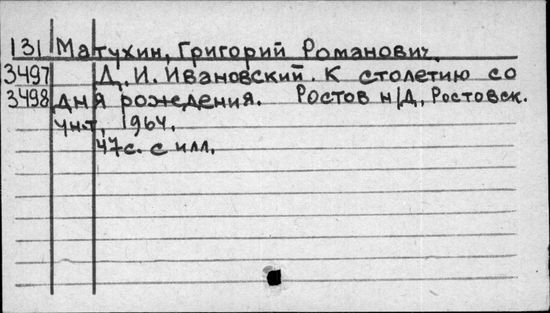 131 Матухин, Григорий Романович.
3497 Д. И. Ивановский. К столетию со
3498 дня рождения. Ростов н/Д, Ростовск.
ун.т, 1964.
47с. с илл.